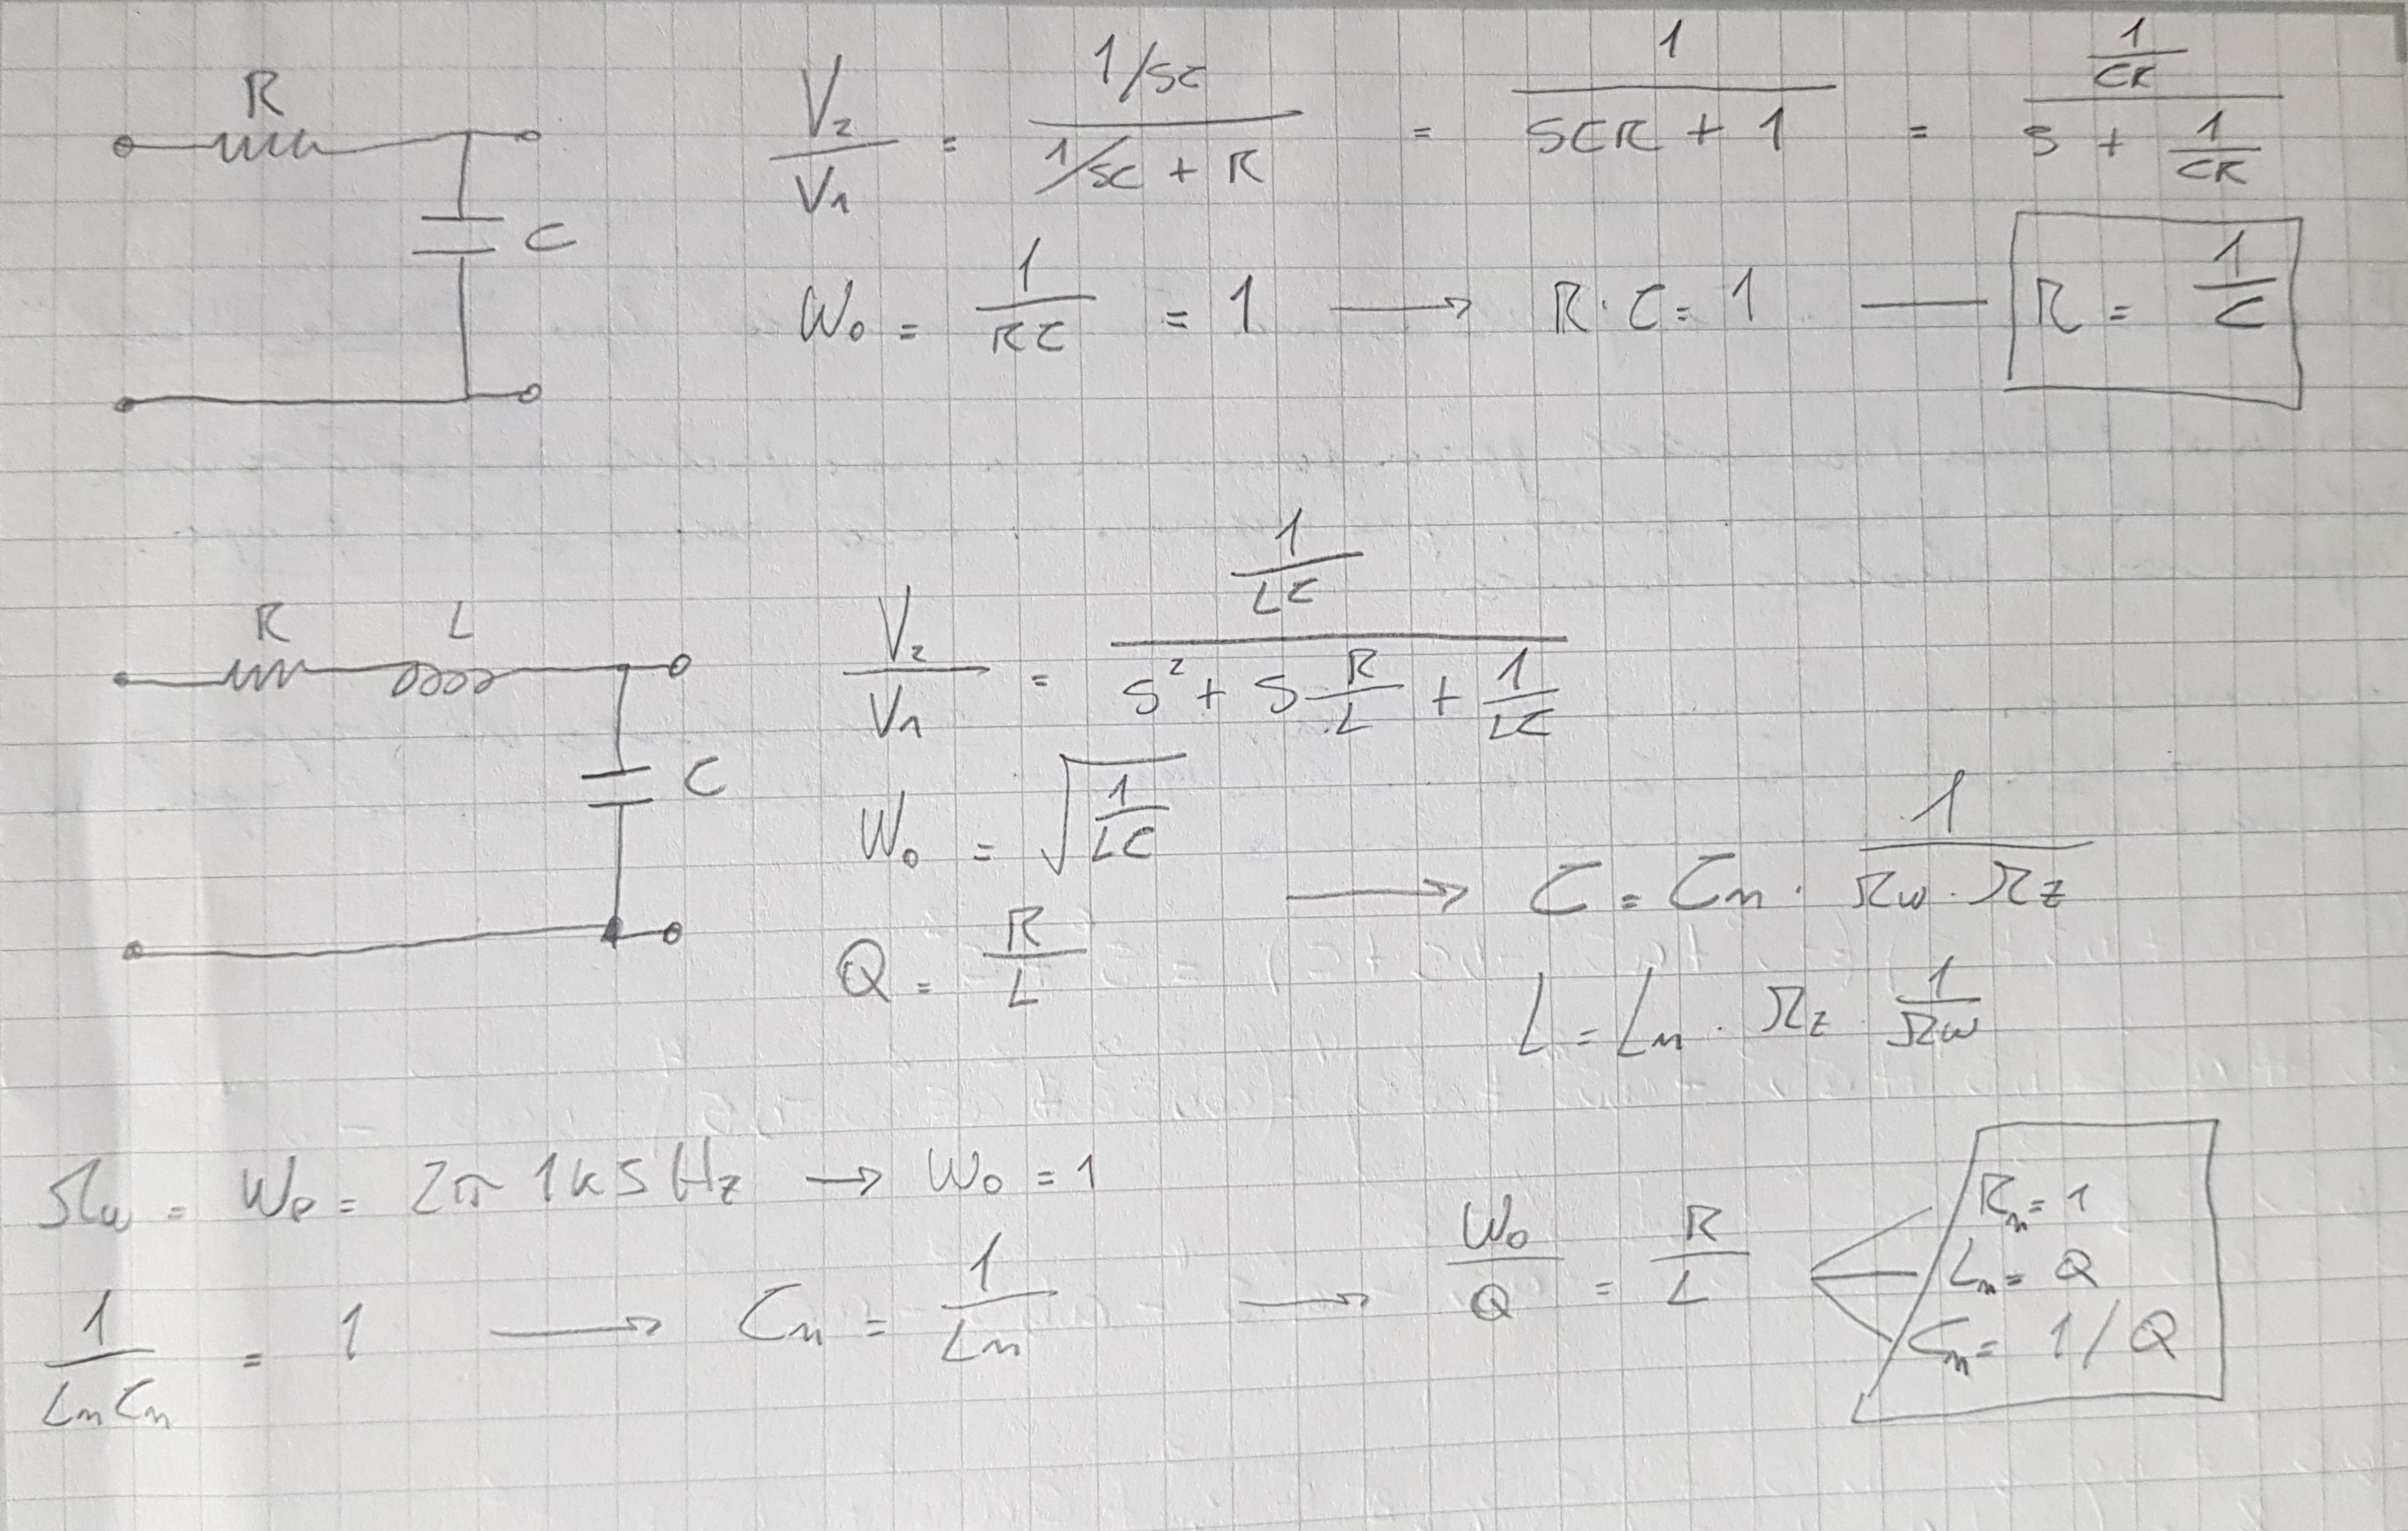 R
C
V₂/V₁ = (1/sc)/(1/sc + R) = 1/(SCR + 1) = (1/CR)/(S + 1/CR)
W₀ = 1/RC = 1 → R·C = 1 — R = 1/C
R L
C
V₂/V₁ = (1/LC)/(S² + S R/L + 1/LC)
W₀ = √(1/LC)
→ C = Cn · 1/(Ωw · Ωz)
Q = R/L
L = Ln · Ωz · 1/Ωw
Ωw = W₀ = 2π 1k5 Hz → W₀ = 1
1/(Ln Cn) = 1 → Cn = 1/Ln → W₀/Q = R/L
Rn = 1
Ln = Q
Cn = 1/Q